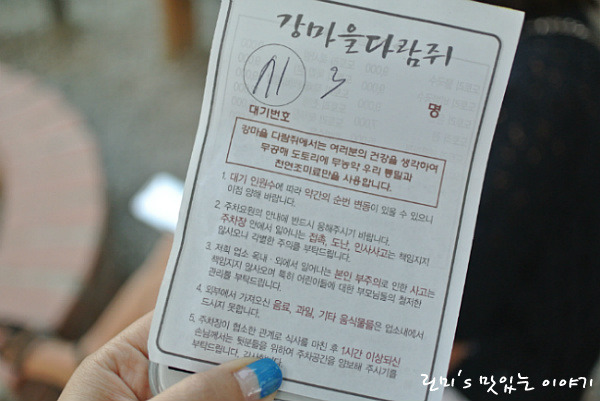 강마을다람쥐
3 명
대기번호
강마을 다람쥐에서는 여러분의 건강을 생각하여
무공해 도토리에 무농약 우리 통밀과
천연조미료만을 사용합니다.
1. 대기 인원수에 따라 약간의 순번 변동이 있을 수 있으니
이점 양해 바랍니다.
2. 주차요원의 안내에 반드시 응해주시기 바랍니다.
주차장 안에서 일어나는 접촉, 도난, 인사사고는 책임지지
않사오니 각별한 주의를 부탁드립니다.
3. 저희 업소 옥내·외에서 일어나는 본인 부주의로 인한 사고는
책임지지 않사오며 특히 어린이들에 대한 부모님들의 철저한
관리를 부탁드립니다.
4. 외부에서 가져오신 음료, 과일, 기타 음식물들은 업소내에서
드시지 못합니다.
5. 주차장이 협소한 관계로 식사를 마친 후 1시간 이상되신
손님께서는 뒷분들을 위하여 주차공간을 양보해 주시기를
부탁드립니다. 감사합니다.
린미's 맛있는 이야기